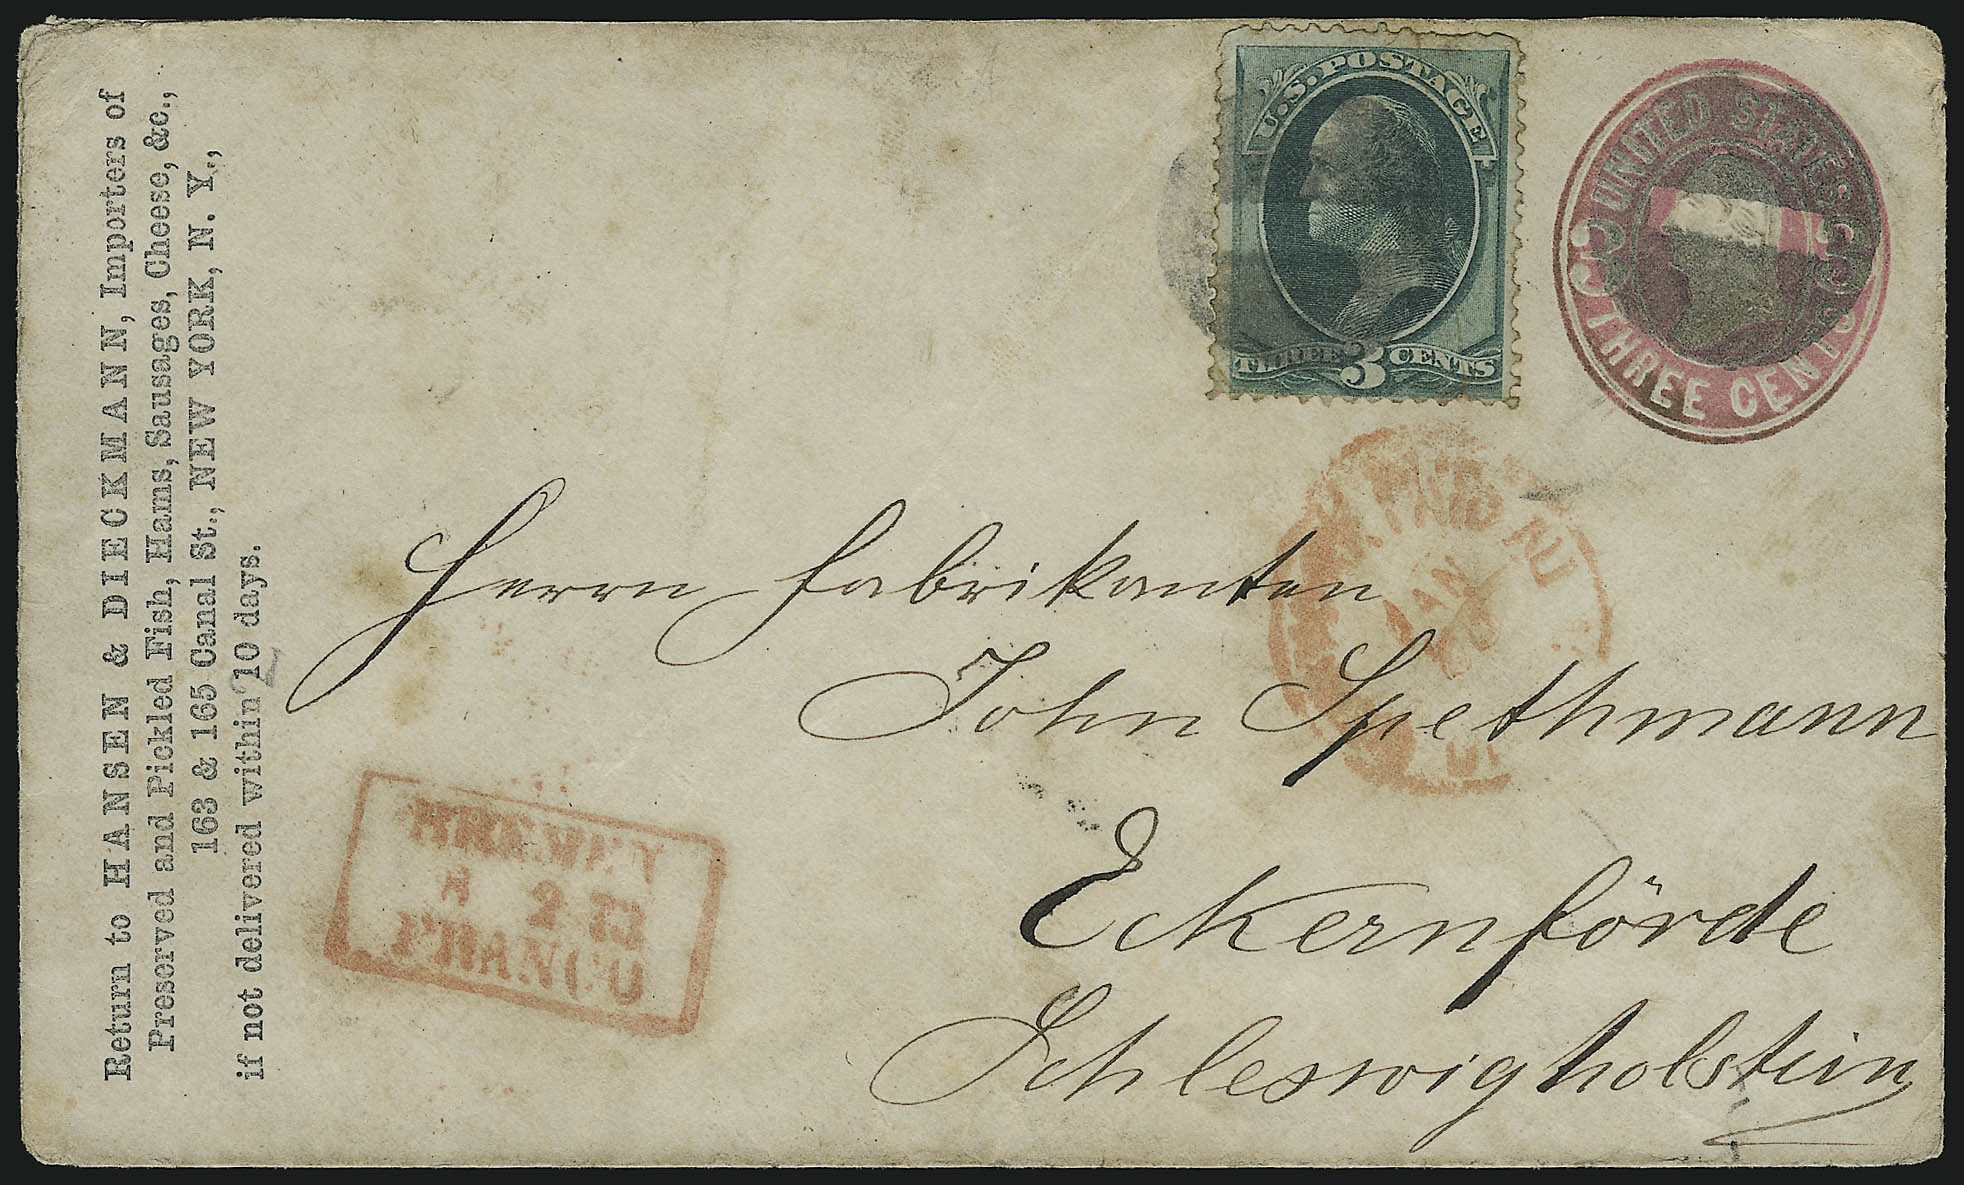 Return to HANSEN & DIECKMANN, Importers of
Preserved and Pickled Fish, Hams, Sausages, Cheese, &c.,
163 & 165 Canal St., NEW YORK, N. Y.,
if not delivered within 10 days.
2
U.S. POSTAGE
THREE 3 CENTS
UNITED STATES
3 3
THREE CENTS
PAID ALL
JAN
Herrn Fabrikanten
John Spethmann
Eckernförde
Schleswigholstein
BREMEN
8 2 73
FRANCO